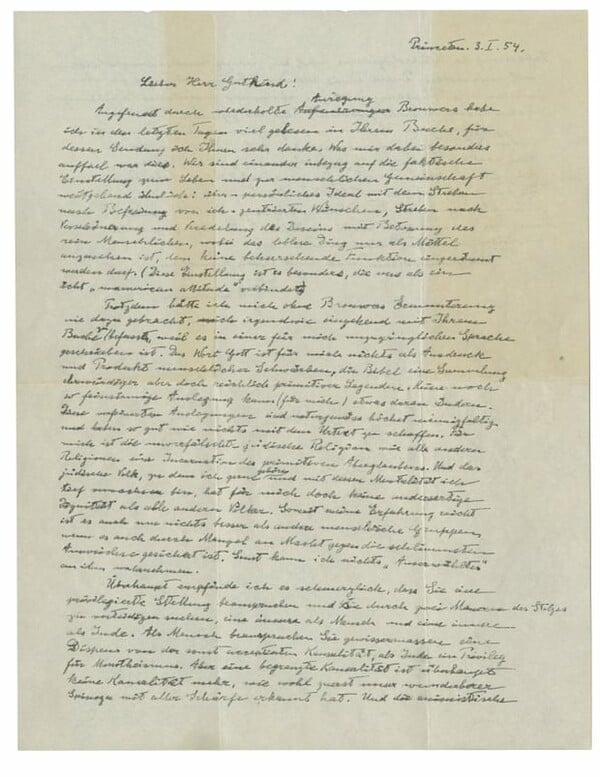 Princeton. 3. I. 54.
Lieber Herr Gutkind!
Anregung
Angefeuert durch wiederholte Aufforderungen Brouwers habe
ich in den letzten Tagen viel gelesen in Ihrem Buche, für
dessen Sendung ich Ihnen sehr danke. Was mir dabei besonders
auffiel war dies. Wir sind einander inbezug auf die faktische
Einstellung zum Leben und zur menschlichen Gemeinschaft
weitgehend ähnlich: persönliches Ideal mit dem Streben
nach Befreiung von ich-zentrierten Wünschen, Streben nach
Verschönerung und Veredelung des Daseins mit Betonung des
rein Menschlichen, wobei das leblose Ding nur als Mittel
anzusehen ist, dem keine beherrschende Funktion eingeräumt
werden darf. (Diese Einstellung ist es besonders, die uns als ein
echt "unamerican attitude" verbindet)
Trotzdem hätte ich mich ohne Brouwers Ermunterung
nie dazu gebracht, mich irgendwie eingehend mit Ihrem
Buche zu befassen, weil es in einer für mich unzugänglichen Sprache
geschrieben ist. Das Wort Gott ist für mich nichts als Ausdruck
und Produkt menschlicher Schwächen, die Bibel eine Sammlung
ehrwürdiger aber doch reichlich primitiver Legenden. Keine noch
so feinsinnige Auslegung kann (für mich) etwas daran ändern.
Diese verfeinerten Auslegungen sind naturgemäss höchst mannigfaltig
und haben so gut wie nichts mit dem Urtext zu schaffen. Für
mich ist die unverfälschte jüdische Religion wie alle anderen
Religionen eine Incarnation des primitiven Aberglaubens. Und das
jüdische Volk, zu dem ich gerne gehöre und mit dessen Mentalität ich
tief verwachsen bin, hat für mich doch keine andersartige
Dignität als alle anderen Völker. Soweit meine Erfahrung reicht
ist es auch um nichts besser als andere menschliche Gruppen,
wenn es auch durch Mangel an Macht gegen die schlimmsten
Auswüchse gesichert ist. Sonst kann ich nichts "Auserwähltes"
an ihm wahrnehmen.
Überhaupt empfinde ich es schmerzlich, dass Sie eine
privilegierte Stellung beanspruchen und sie durch zwei Mauern des Stolzes
zu verteidigen suchen, eine äussere als Mensch und eine innere
als Jude. Als Mensch beanspruchen Sie gewissermassen einen
Dispens von der sonst acceptierten Kausalität, als Jude ein Privileg
für Monotheismus. Aber eine begrenzte Kausalität ist überhaupt
keine Kausalität mehr, wie wohl zuerst unser wunderbarer
Spinoza mit aller Schärfe erkannt hat. Und die animistische